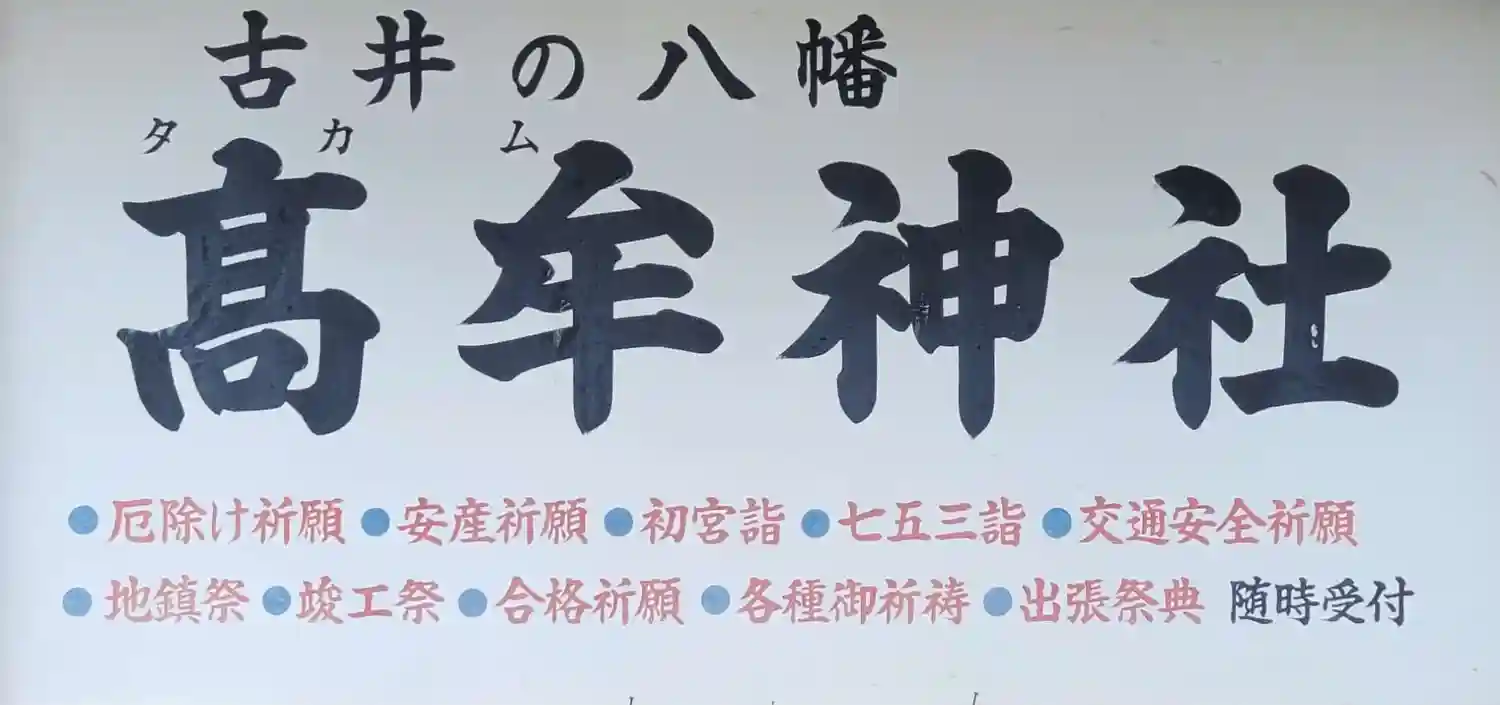 古井の八幡
タカム
髙牟神社
●厄除け祈願 ●安産祈願 ●初宮詣 ●七五三詣 ●交通安全祈願
●地鎮祭 ●竣工祭 ●合格祈願 ●各種御祈祷 ●出張祭典 随時受付